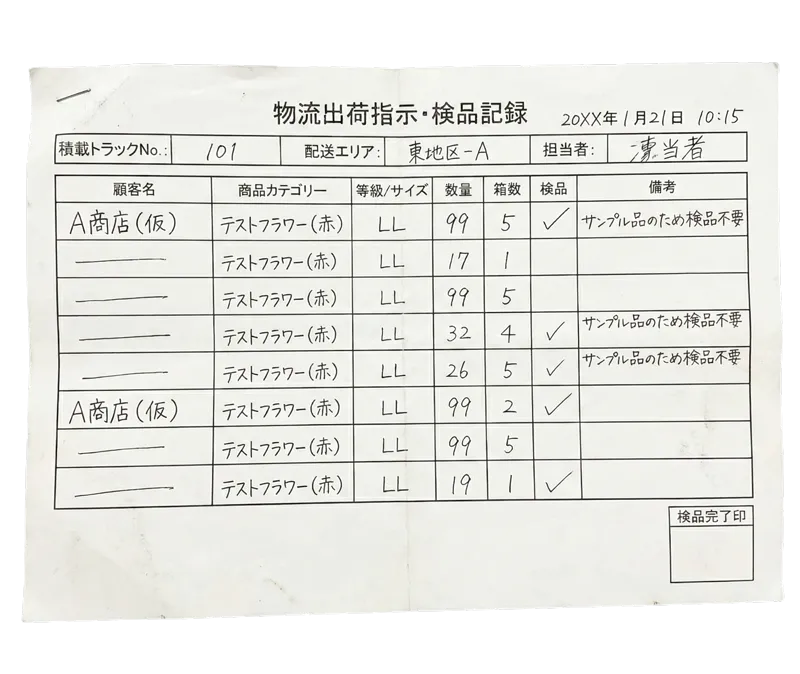 物流出荷指示・検品記録 20XX年1月21日 10:15
積載トラックNo.: 101 配送エリア: 東地区-A 担当者: 当者
顧客名 商品カテゴリー 等級/サイズ 数量 箱数 検品 備考
A商店(仮) テストフラワー(赤) LL 99 5 ✓ サンプル品のため検品不要
―― テストフラワー(赤) LL 17 1
―― テストフラワー(赤) LL 99 5
―― テストフラワー(赤) LL 32 4 ✓ サンプル品のため検品不要
―― テストフラワー(赤) LL 26 5 ✓ サンプル品のため検品不要
A商店(仮) テストフラワー(赤) LL 99 2 ✓
―― テストフラワー(赤) LL 99 5
―― テストフラワー(赤) LL 19 1 ✓
検品完了印